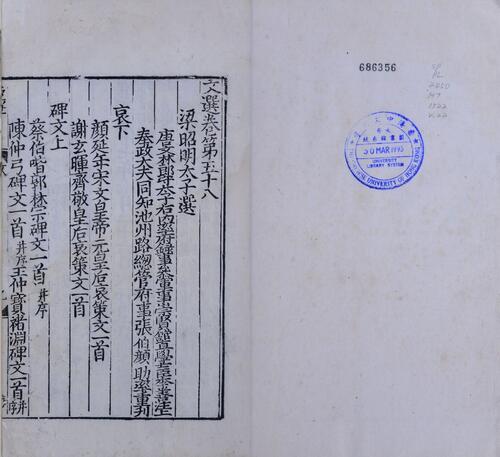 文選卷第五十八
梁昭明太子選
唐文林郎守太子右內率府錄事參軍事崇賢館直學士臣李善注
奉政大夫同知池州路總管府事張伯顏助率重刋
哀下
顏延年宋文皇帝元皇后哀策文一首
謝玄暉齊敬皇后哀策文一首
碑文上
蔡伯喈郭林宗碑文一首并序
陳仲弓碑文一首并序王仲寶褚淵碑文一首并序
686356
30 MAR 1995
UNIVERSITY
LIBRARY SYSTEM
THE CHINESE UNIVERSITY OF HONG KONG